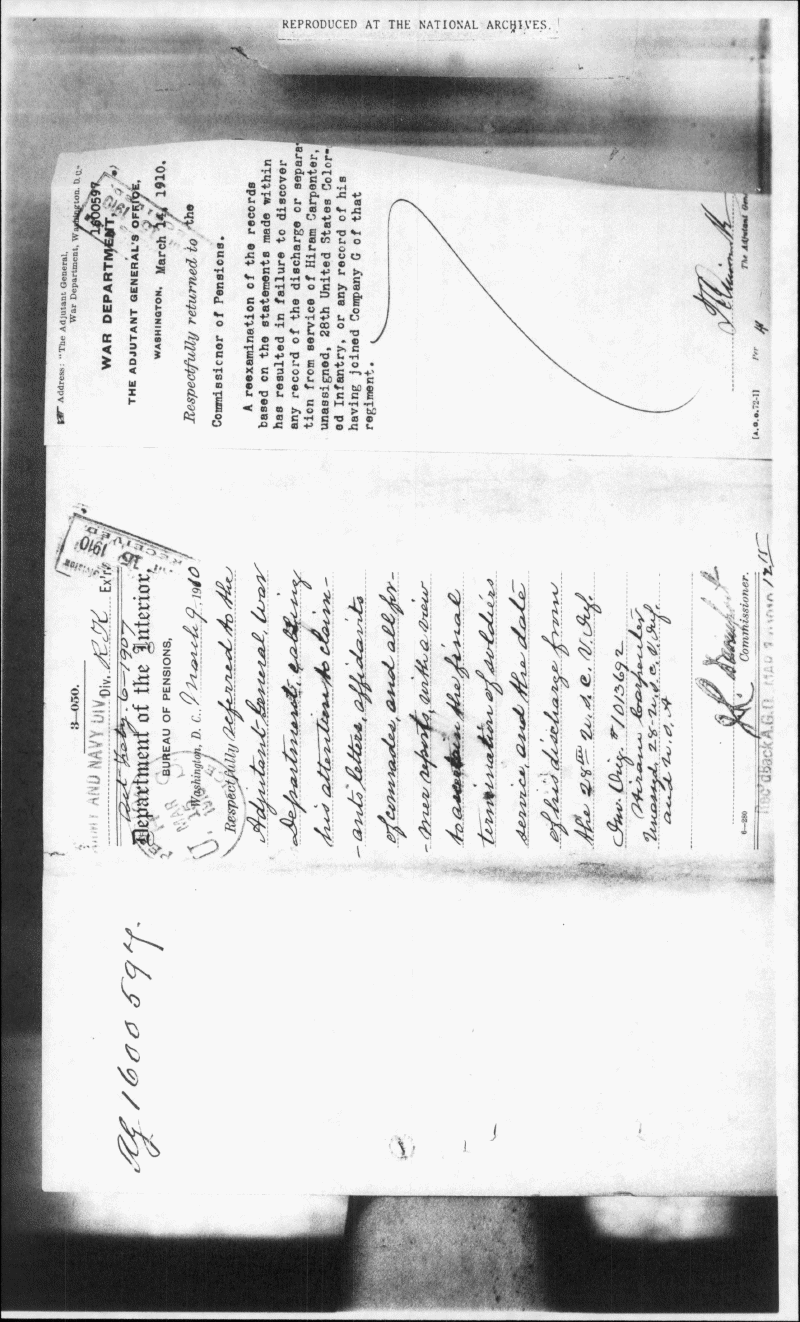 REPRODUCED AT THE NATIONAL ARCHIVES.
Address: "The Adjutant General,
War Department, Washington, D.C."
1600597
WAR DEPARTMENT,
THE ADJUTANT GENERAL'S OFFICE,
WASHINGTON, March 14, 1910.
Respectfully returned to the
Commissioner of Pensions.
A reexamination of the records
based on the statements made within
has resulted in failure to discover
any record of the discharge or separa-
tion from service of Hiram Carpenter,
unassigned, 28th United States Color-
ed Infantry, or any record of his
having joined Company G of that
regiment.
The Adjutant Gen
Per
[A.G.O. 72-1]
3-050.
ARMY AND NAVY DIV.
Div. Ex'r
6-1907
Department of the Interior,
BUREAU OF PENSIONS,
Washington, D. C., March 9, 1910
Respectfully referred to the
Adjutant General, War
Department, calling
his attention to claim-
-ant's letters, affidavits
of comrades, and all for-
-mer reports, with a view
to ascertain the final
termination of soldiers
service, and the date
of his discharge from
the 28th U.S.C.V. Inf.
Inv. Orig. #1013692
Hiram Carpenter
Unassd. 28 U.S.C.V. Inf.
and U.S.A
Commissioner.
6-280
Rec'd back A.G.O. MAR
RECEIVED
15
1910
1600597